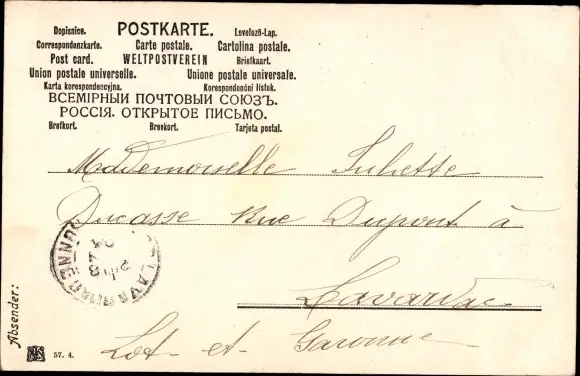 Dopisnice. POSTKARTE. Levelező-Lap.
Correspondenzkarte. Carte postale. Cartolina postale.
Post card. WELTPOSTVEREIN Briefkaart.
Union postale universelle. Unione postale universale.
Karta korespondencyjna. Korespondenčni listok.
ВСЕМІРНЫЙ ПОЧТОВЫЙ СОЮЗЪ.
РОССІЯ. ОТКРЫТОЕ ПИСЬМО.
Brefkort. Brevkort. Tarjeta postal.
Mademoiselle Juliette
Ducasse Rue Dupont à
Lavardac
Lot-et-Garonne
Absender:
57. 4.